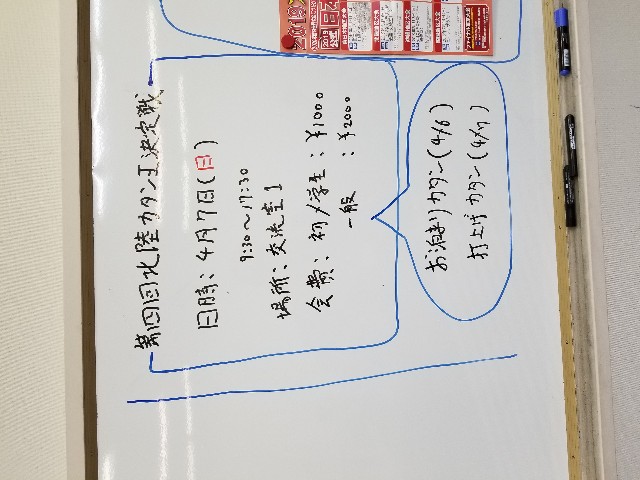 第四回北陸カタン王決定戦
日時：4月7日(日)
9:30～17:30
場所：交流室1
会費：初／学生：¥1000
一般：¥2000
お泊りカタン(4/6)
打上げカタン(4/7)
2019